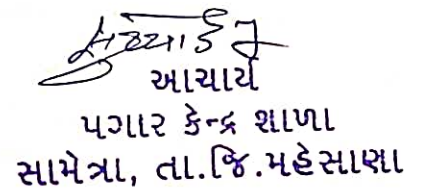 આચાર્ય
પગાર કેન્દ્ર શાળા
સામેત્રા, તા.જિ.મહેસાણા